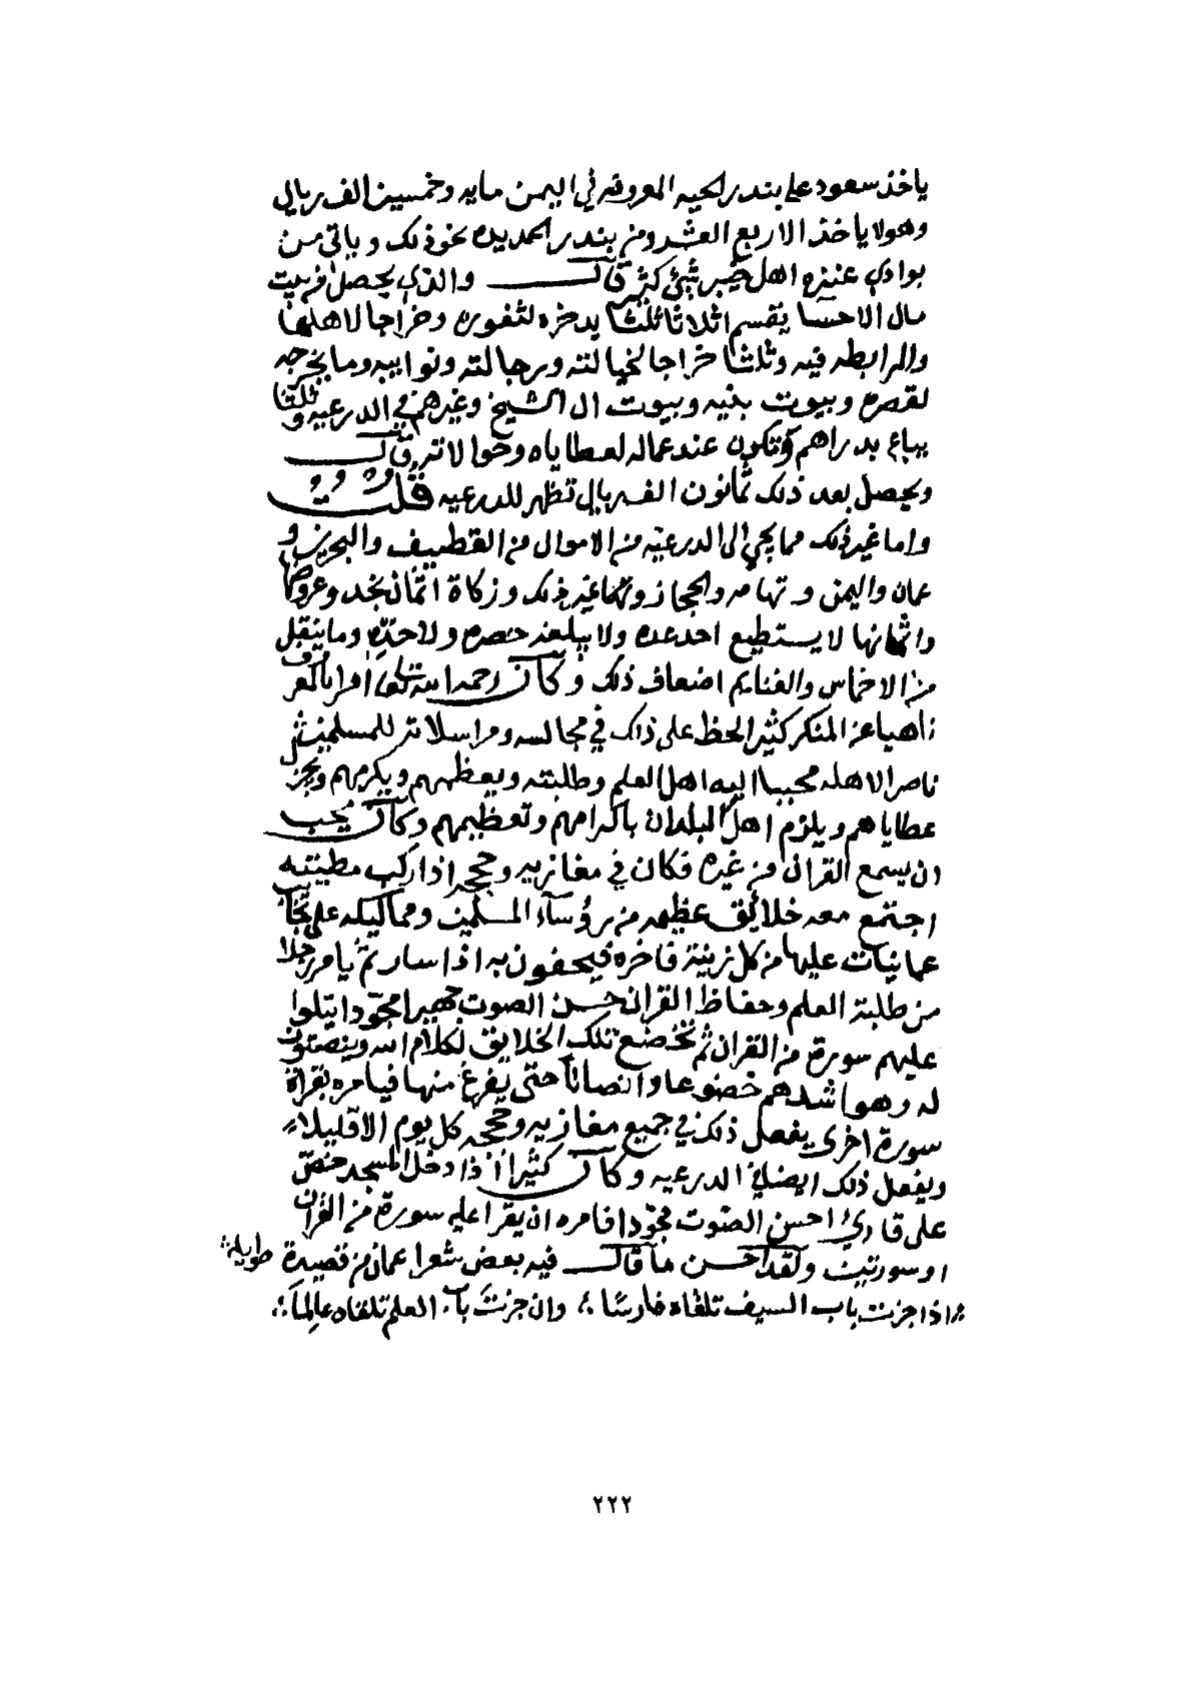 ياخذ سعود على بندر الحيه المعروفه في اليمن مايه وخمسين الف ريال
وهو لا ياخذ الا ربع العشر ومن بندر الحديده نحو ذلك وياتي من
بوادي عنزه اهل خيبر شيئ كثير قال والذي يحصل من بيت
مال الاحسا يقسم اثلاثا ثلثا يدخره لثغوره وخراجا لاهلها
والمرابطه فيه وثلثا خراجا لخيالته ورجالته ونوايبه وما يخرجه
لقصره وبيوت بنيه وبيوت ال الشيخ وغيرهم في الدرعيه وثلثا
يباع بدراهم وتكون عند عماله لعطاياه وحوالاته قال
ويحصل بعد ذلك ثمانون الف ريال تظهر للدرعيه قلت
واما غير ذلك مما يجي الى الدرعيه من الاموال من القطيف والبحرين و
عمان واليمن وتهامه والحجاز وغير ذلك وزكاة اثمان نجد وعروضها
واثمانها لا يستطيع احد عده ولا يبلغه حصره ولا حده وما ينقل
من الاخماس والغنايم اضعاف ذلك وكان رحمه الله تعالى امرا بالمعروف
ناهيا عن المنكر كثير الحظ على ذلك في مجالسه ومراسلاته للمسلمين
ناصرا لاهله محببا اليه اهل العلم وطلبته ويعظمهم ويكرمهم ويجزل
عطاياهم ويلزم اهل البلدان باكرامهم وتعظيمهم وكان يحب
ان يسمع القران من غيره فكان في مغازيه وحججه اذا ركب مطيته
اجتمع معه خلائق عظيمه من رؤسآء المسلمين ومماليكه على نجائب
عمانيات عليها من كل زينة فاخره فيحفون به اذا سار ثم يامر رجلا
من طلبة العلم وحفاظ القران حسن الصوت جهيرا مجودا يتلوا
عليهم سورة من القران ثم تخضع تلك الخلايق لكلام الله وينصتون
له وهو اشدهم خضوعا وانصاتا حتى يفرغ منها فيامره بقراة
سورة اخرى يفعل ذلك في جميع مغازيه وحججه كل يوم الا قليلا
ويفعل ذلك ايضا في الدرعيه وكان كثيرا اذا دخل المسجد حض
على قارئ احسن الصوت مجودا فامره ان يقرا عليه سورة من القران
او سورتين ولقد احسن ما قال فيه بعض شعرا عمان من قصيدة طويله
اذا جزت باب السيف تلقاه فارسا وان جزت باب العلم تلقاه عالما
٢٢٢